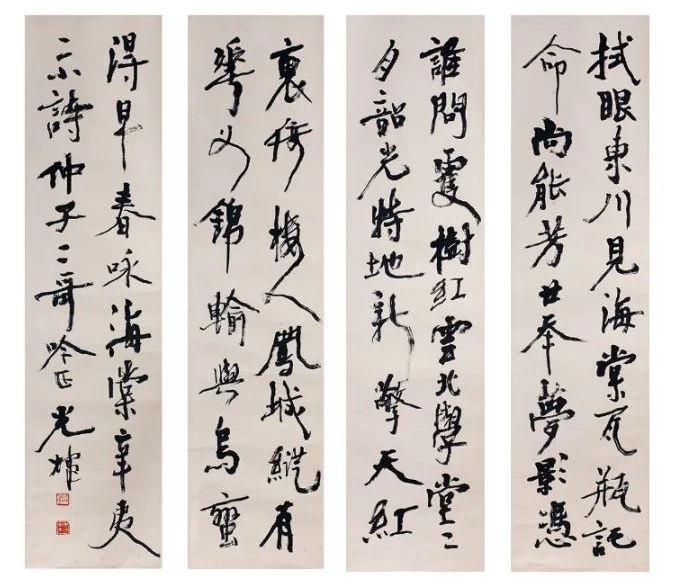 拭眼東川見海棠瓦瓶託
命尚能芳廿年夢影憑
誰問雙樹紅雲北學堂二
月韶光特地新擎天紅
裏倚樓人鳳城縱有
華如錦輸與烏蠻
得早春咏海棠辛夷
示詩仲子二哥吟正光煒